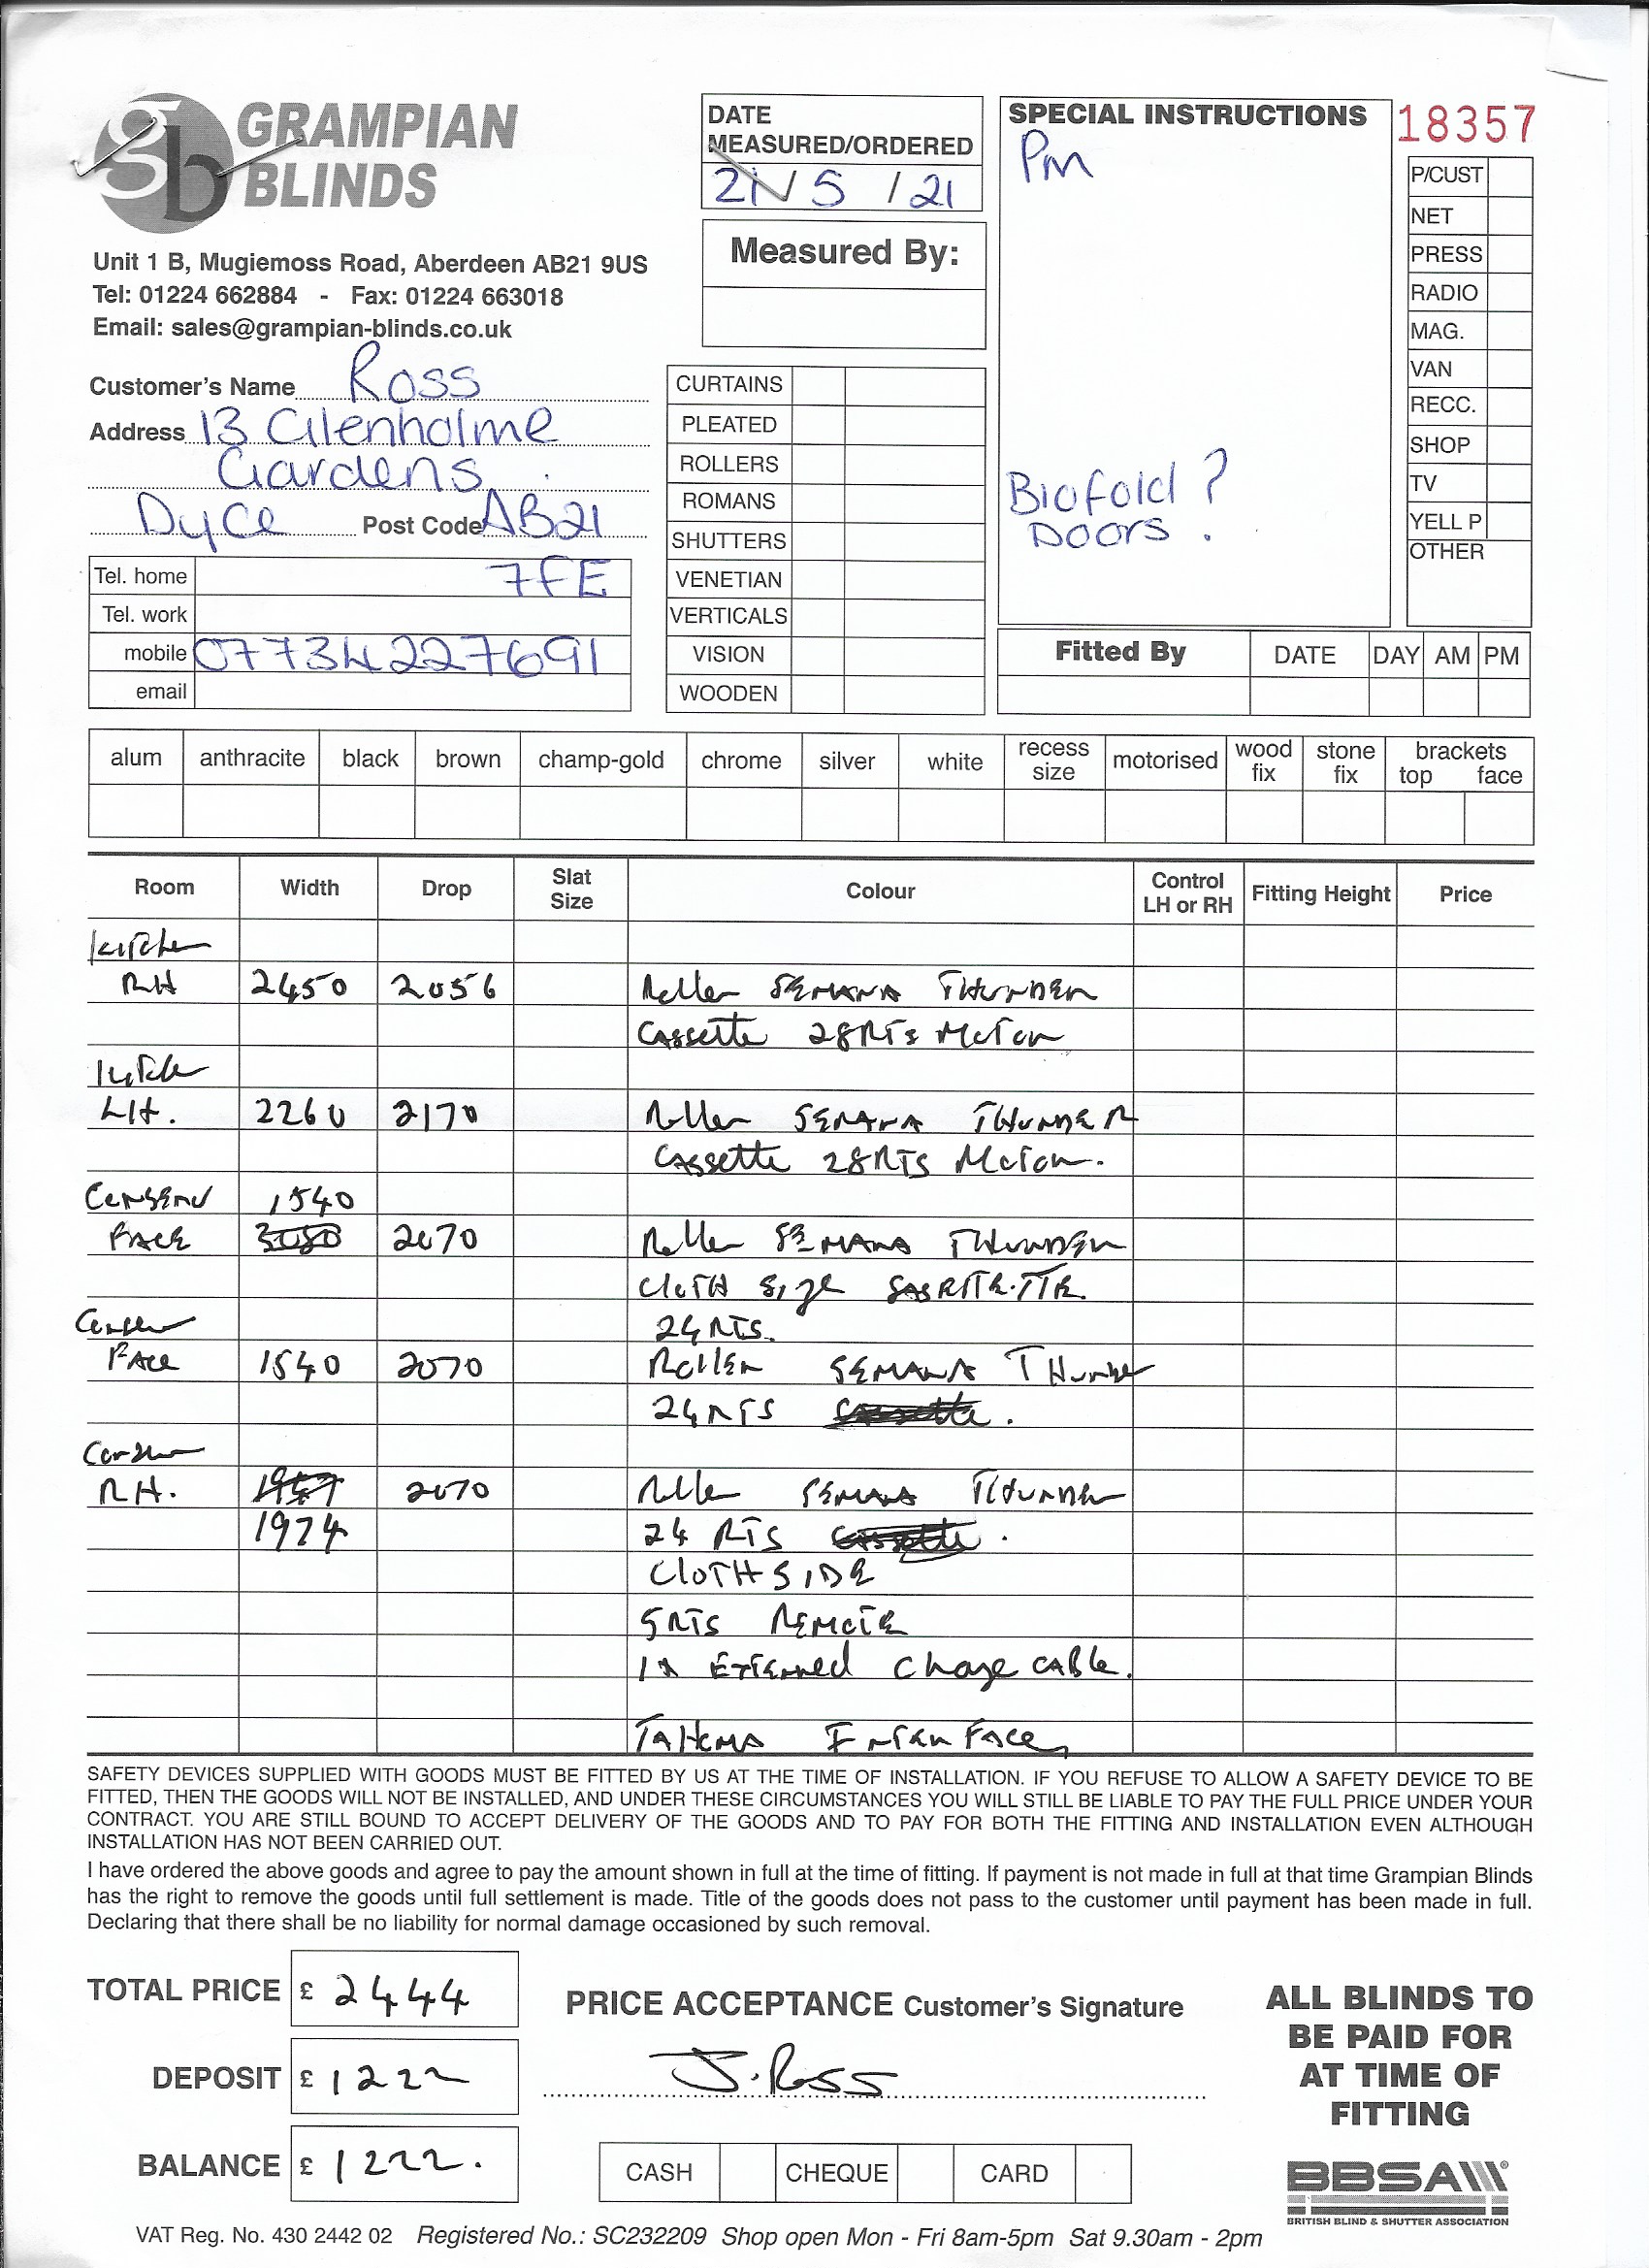 GRAMPIAN
BLINDS
Unit 1 B, Mugiemoss Road, Aberdeen AB21 9US
Tel: 01224 662884 - Fax: 01224 663018
Email: sales@grampian-blinds.co.uk
DATE
MEASURED/ORDERED
21/5/21
Measured By:
SPECIAL INSTRUCTIONS
Pm
Biofold ?
Doors .
18357
P/CUST
NET
PRESS
RADIO
MAG.
VAN
RECC.
SHOP
TV
YELL P
OTHER
Customer's Name Ross
Address 13 Glenholme
Gardens
Dyce Post Code AB21
Tel. home 7FE
Tel. work
mobile 07734227691
email
CURTAINS
PLEATED
ROLLERS
ROMANS
SHUTTERS
VENETIAN
VERTICALS
VISION
WOODEN
Fitted By DATE DAY AM PM
alum anthracite black brown champ-gold chrome silver white recess size motorised wood fix stone fix brackets top face
Room Width Drop Slat Size Colour Control LH or RH Fitting Height Price
Kitchen
RH 2450 2056 Roller SEMANA THUNDER
Cassette 28RTS Motor
Kitchen
LH. 2260 2170 Roller SEMANA THUNDER
Cassette 28RTS Motor.
1540
FACE 2070 Roller SEMANA THUNDER
CLOTH Size
24RTS.
FACE 1540 2070 Roller SEMANA THUNDER
24RTS
R.H. 2070 Roller SEMANA THUNDER
1974 24 RTS
CLOTH SIDE
5RTS REMOTE
1x External Charge CABLE.
TAHOMA InterFace
SAFETY DEVICES SUPPLIED WITH GOODS MUST BE FITTED BY US AT THE TIME OF INSTALLATION. IF YOU REFUSE TO ALLOW A SAFETY DEVICE TO BE
FITTED, THEN THE GOODS WILL NOT BE INSTALLED, AND UNDER THESE CIRCUMSTANCES YOU WILL STILL BE LIABLE TO PAY THE FULL PRICE UNDER YOUR
CONTRACT. YOU ARE STILL BOUND TO ACCEPT DELIVERY OF THE GOODS AND TO PAY FOR BOTH THE FITTING AND INSTALLATION EVEN ALTHOUGH
INSTALLATION HAS NOT BEEN CARRIED OUT.
I have ordered the above goods and agree to pay the amount shown in full at the time of fitting. If payment is not made in full at that time Grampian Blinds
has the right to remove the goods until full settlement is made. Title of the goods does not pass to the customer until payment has been made in full.
Declaring that there shall be no liability for normal damage occasioned by such removal.
TOTAL PRICE £ 2444
DEPOSIT £ 1222
BALANCE £ 1222.
PRICE ACCEPTANCE Customer's Signature
J. Ross
CASH CHEQUE CARD
ALL BLINDS TO
BE PAID FOR
AT TIME OF
FITTING
BBSA
BRITISH BLIND & SHUTTER ASSOCIATION
VAT Reg. No. 430 2442 02 Registered No.: SC232209 Shop open Mon - Fri 8am-5pm Sat 9.30am - 2pm